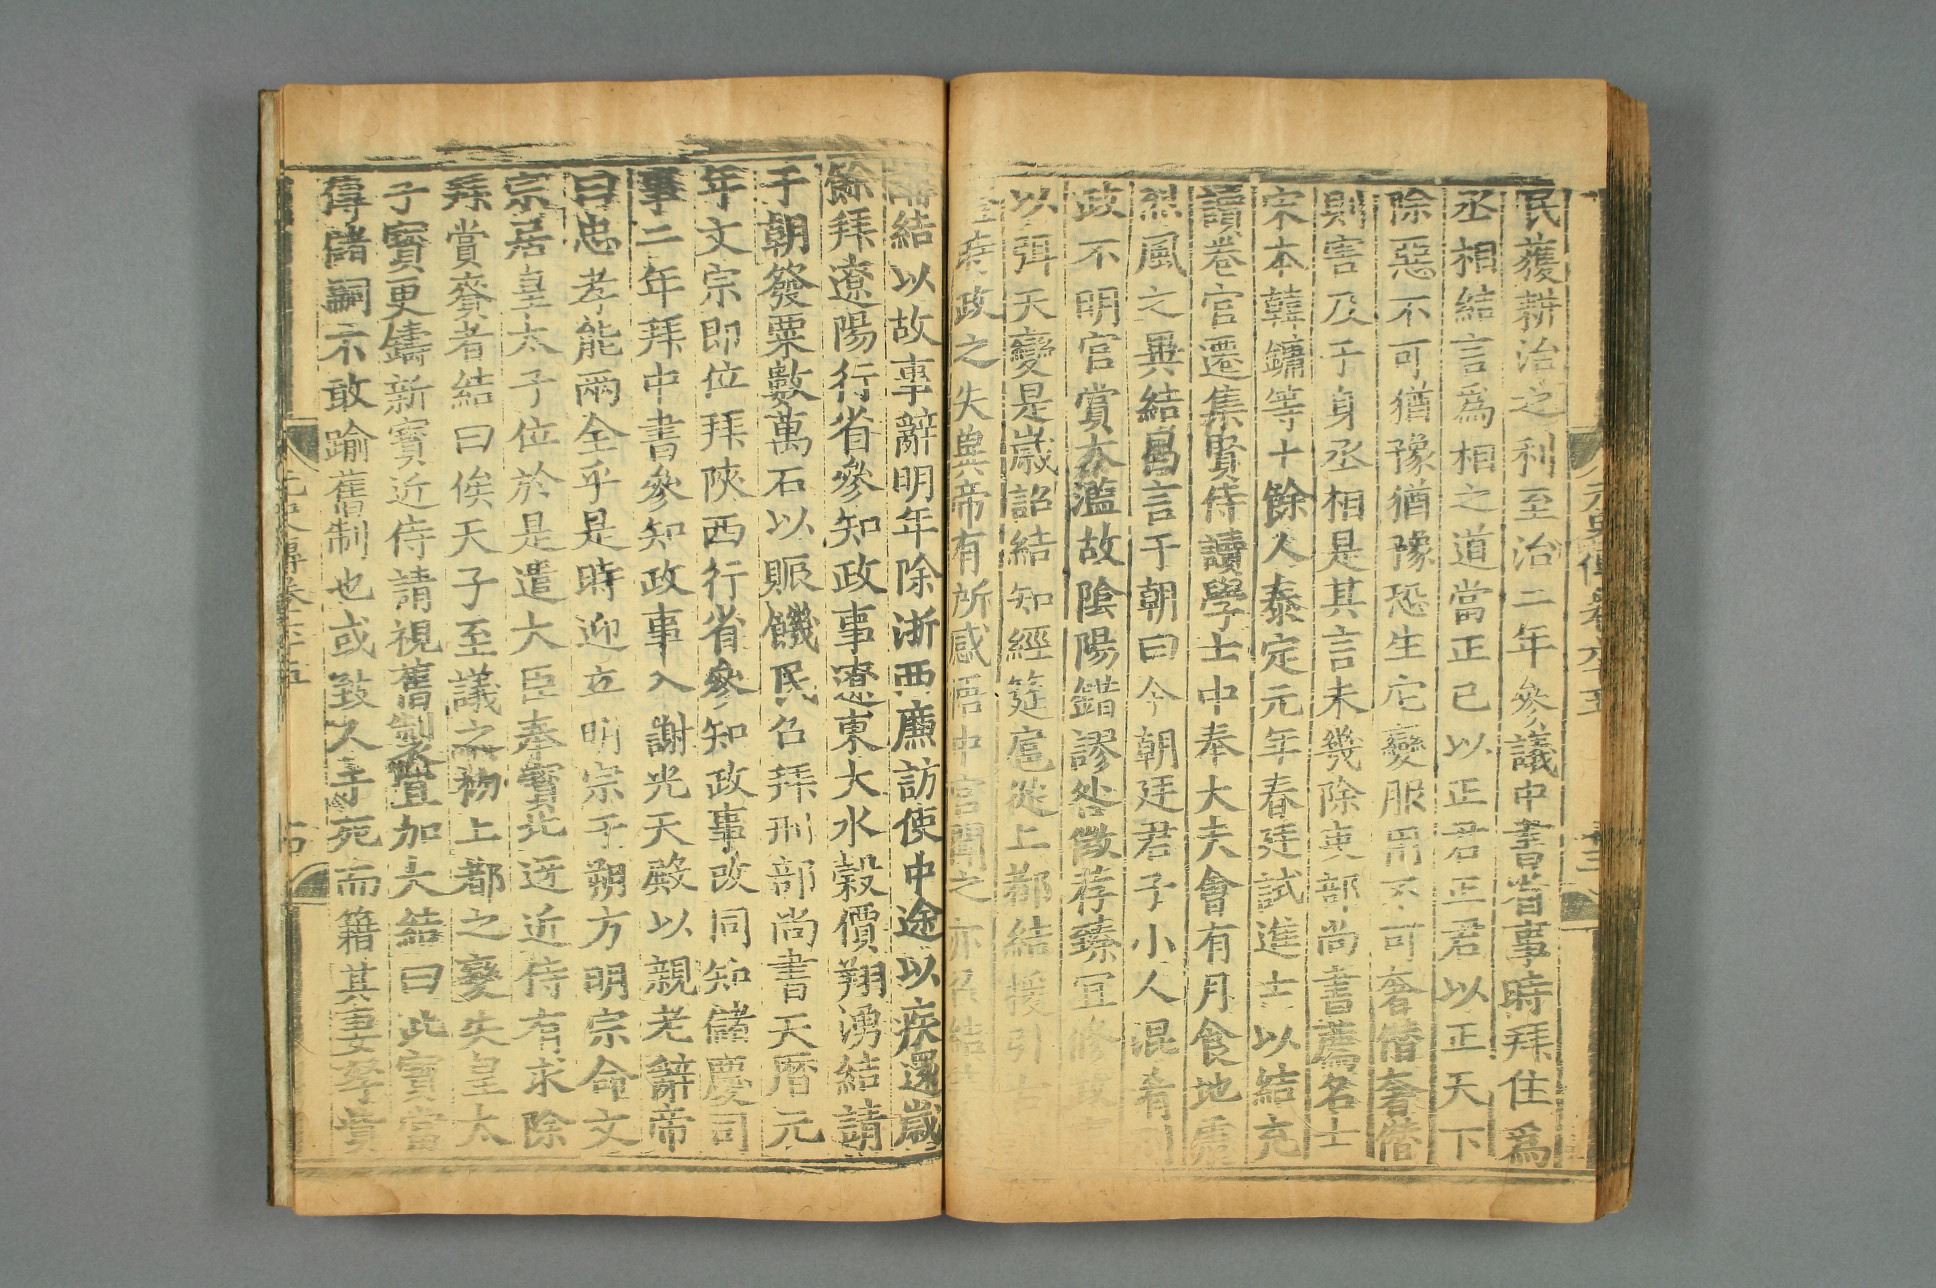 元史傳卷六十五
十三
民獲耕治之利至治二年參議中書省事時拜住爲
丞相結言爲相之道當正己以正君正君以正天下
除惡不可猶豫猶豫恐生它變服用不可奢僭奢僭
則害及于身丞相是其言未幾除吏部尚書薦名士
宋本韓鏞等十餘人泰定元年春廷試進士以結充
讀卷官遷集賢侍讀學士中奉大夫會有月食地震
烈風之異結昌言于朝曰今朝廷君子小人混淆刑
政不明官賞太濫故陰陽錯謬咎徵荐臻宜修政
以弭天變是歲詔結知經筵扈從上都結援引古
證業政之失與帝有所感悟中宮聞之亦召結
結以故事辭明年除浙西廉訪使中途以疾還歲
餘拜遼陽行省參知政事遼東大水穀價翔湧結請
于朝發粟數萬石以賑饑民召拜刑部尚書天曆元
年文宗即位拜陝西行省參知政事改同知儲慶司
事二年拜中書參知政事入謝光天殿以親老辭帝
曰忠孝能兩全乎是時迎立明宗于朔方明宗命文
宗居皇太子位於是遣大臣奉寶北迓近侍有求除
拜賞賚者結曰俟天子至議之初上都之變失皇太
子寶更鑄新寶近侍請視舊制宜加大結曰此寶當
傳儲嗣不敢踰舊制也或致人于死而籍其妻孥貲
元史傳卷六十五